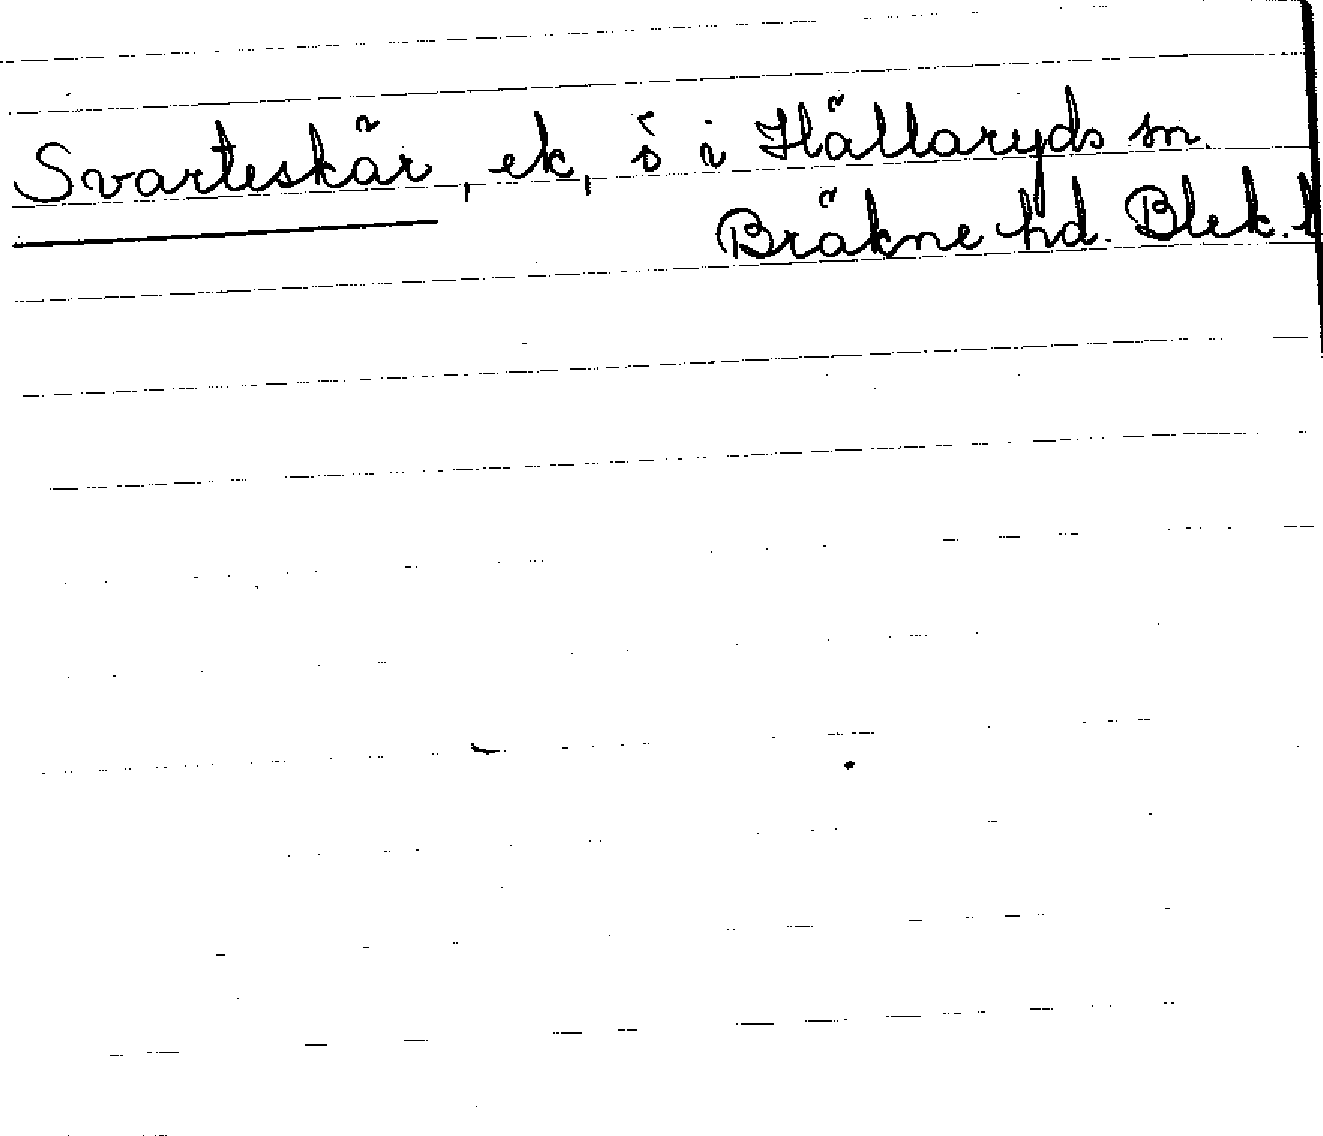 Svarteskär, ek, ö i Hällaryds sn.
Bräkne hd. Blek. l